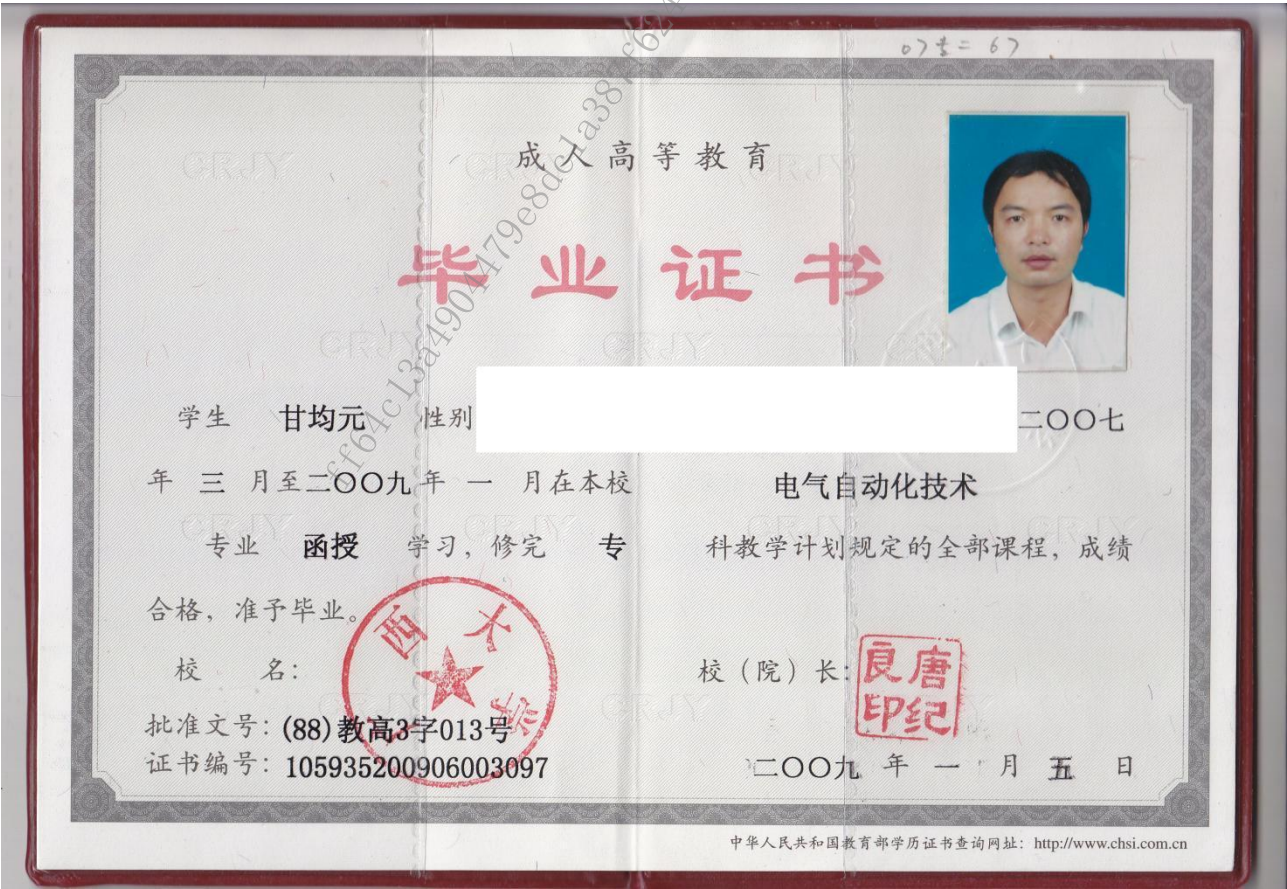 成人高等教育
毕业证书
学生 甘均元 性别 二〇〇七
年 三 月至二〇〇九年 一 月在本校 电气自动化技术
专业 函授 学习，修完 专 科教学计划规定的全部课程，成绩
合格，准予毕业。
西大学
校 名： 校（院）长：
唐纪良印
批准文号：(88)教高3字013号
证书编号：105935200906003097
二〇〇九 年 一 月 五 日
中华人民共和国教育部学历证书查询网址：http://www.chsi.com.cn